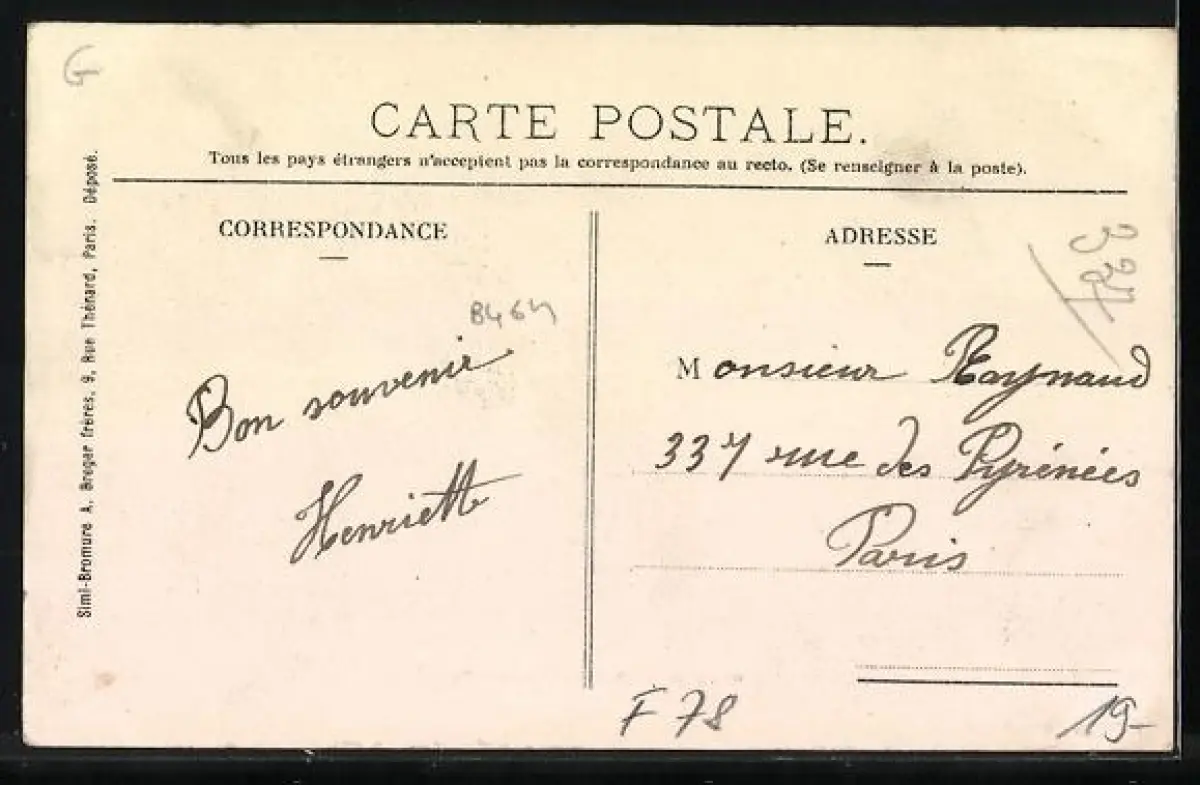 G
CARTE POSTALE.
Tous les pays étrangers n'acceptent pas la correspondance au recto. (Se renseigner à la poste).
Simi-Bromure A. Breger frères, 9, Rue Thénard, Paris. Déposé.
CORRESPONDANCE
8464
Bon souvenir
Henriette
ADRESSE
Monsieur Raynaud
337 rue des Pyrénées
Paris
F 78
19-